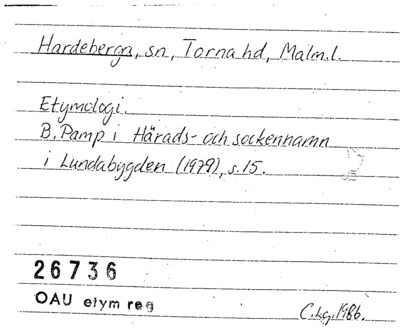 Hardeberga, sn, Torna hd, Malm.l.
Etymologi.
B. Pamp i Härads- och sockennamn
i Lundabygden (1979), s. 15.
26736
OAU etym reg
C.Lg. 1986.